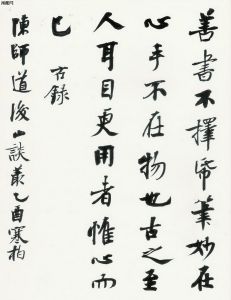 善書不擇帋筆妙在
心手不在物也古之至
人耳目更用者惟心而
已 古錄
陳師道後山談叢乙酉寒柏